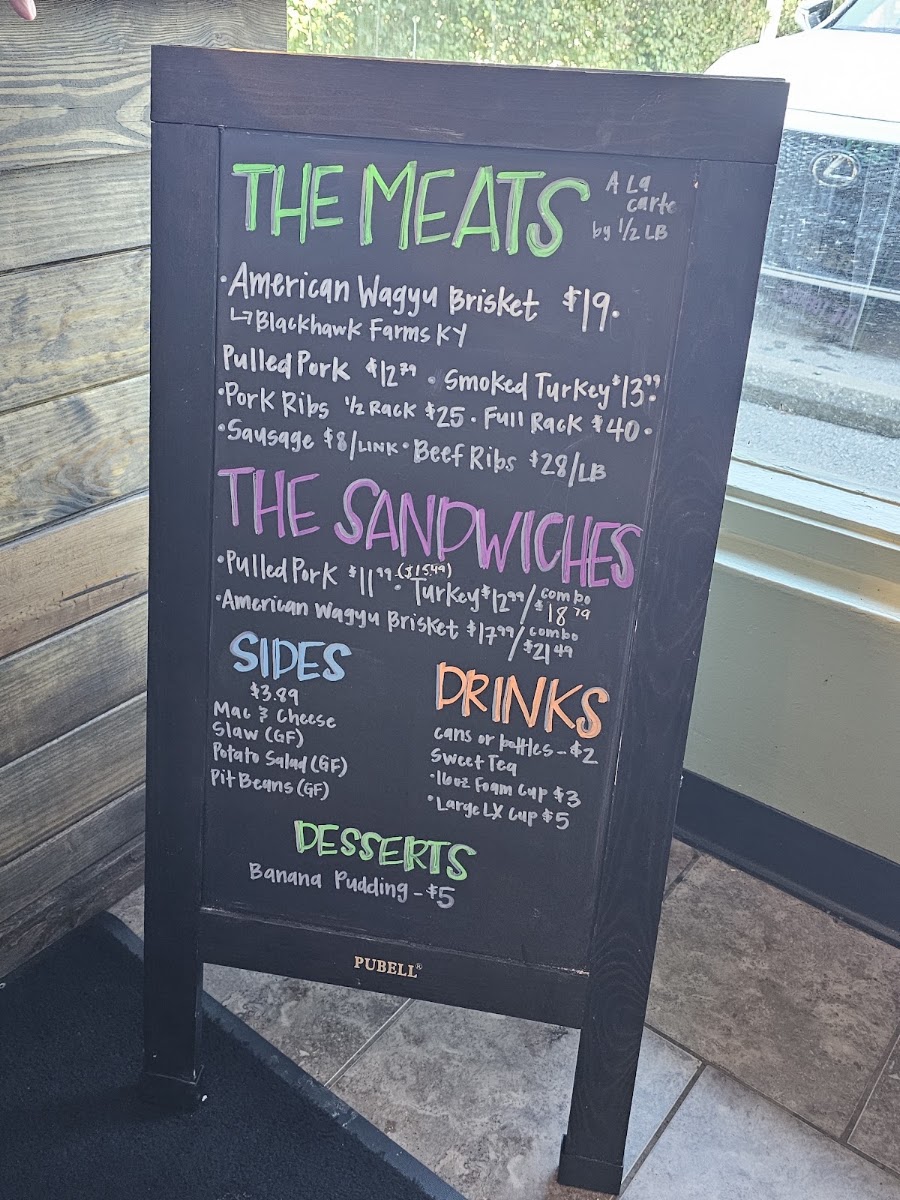 THE MEATS
A La
carte
by 1/2 LB
·American Wagyu Brisket $19·
↳Blackhawk Farms KY
Pulled Pork $12.79 · Smoked Turkey $13.99·
·Pork Ribs 1/2 Rack $25 · Full Rack $40·
·Sausage $8/LINK · Beef Ribs $28/LB
THE SANDWICHES
·Pulled Pork $11.99 ($15.49) · Turkey $12.99/combo $18.79
·American Wagyu Brisket $17.99/combo $21.49
SIDES
$3.89
Mac & Cheese
Slaw (GF)
Potato Salad (GF)
Pit Beans (GF)
DRINKS
cans or bottles - $2
Sweet Tea
·16oz Foam Cup $3
·Large LX Cup $5
DESSERTS
Banana Pudding - $5
PUBELL®